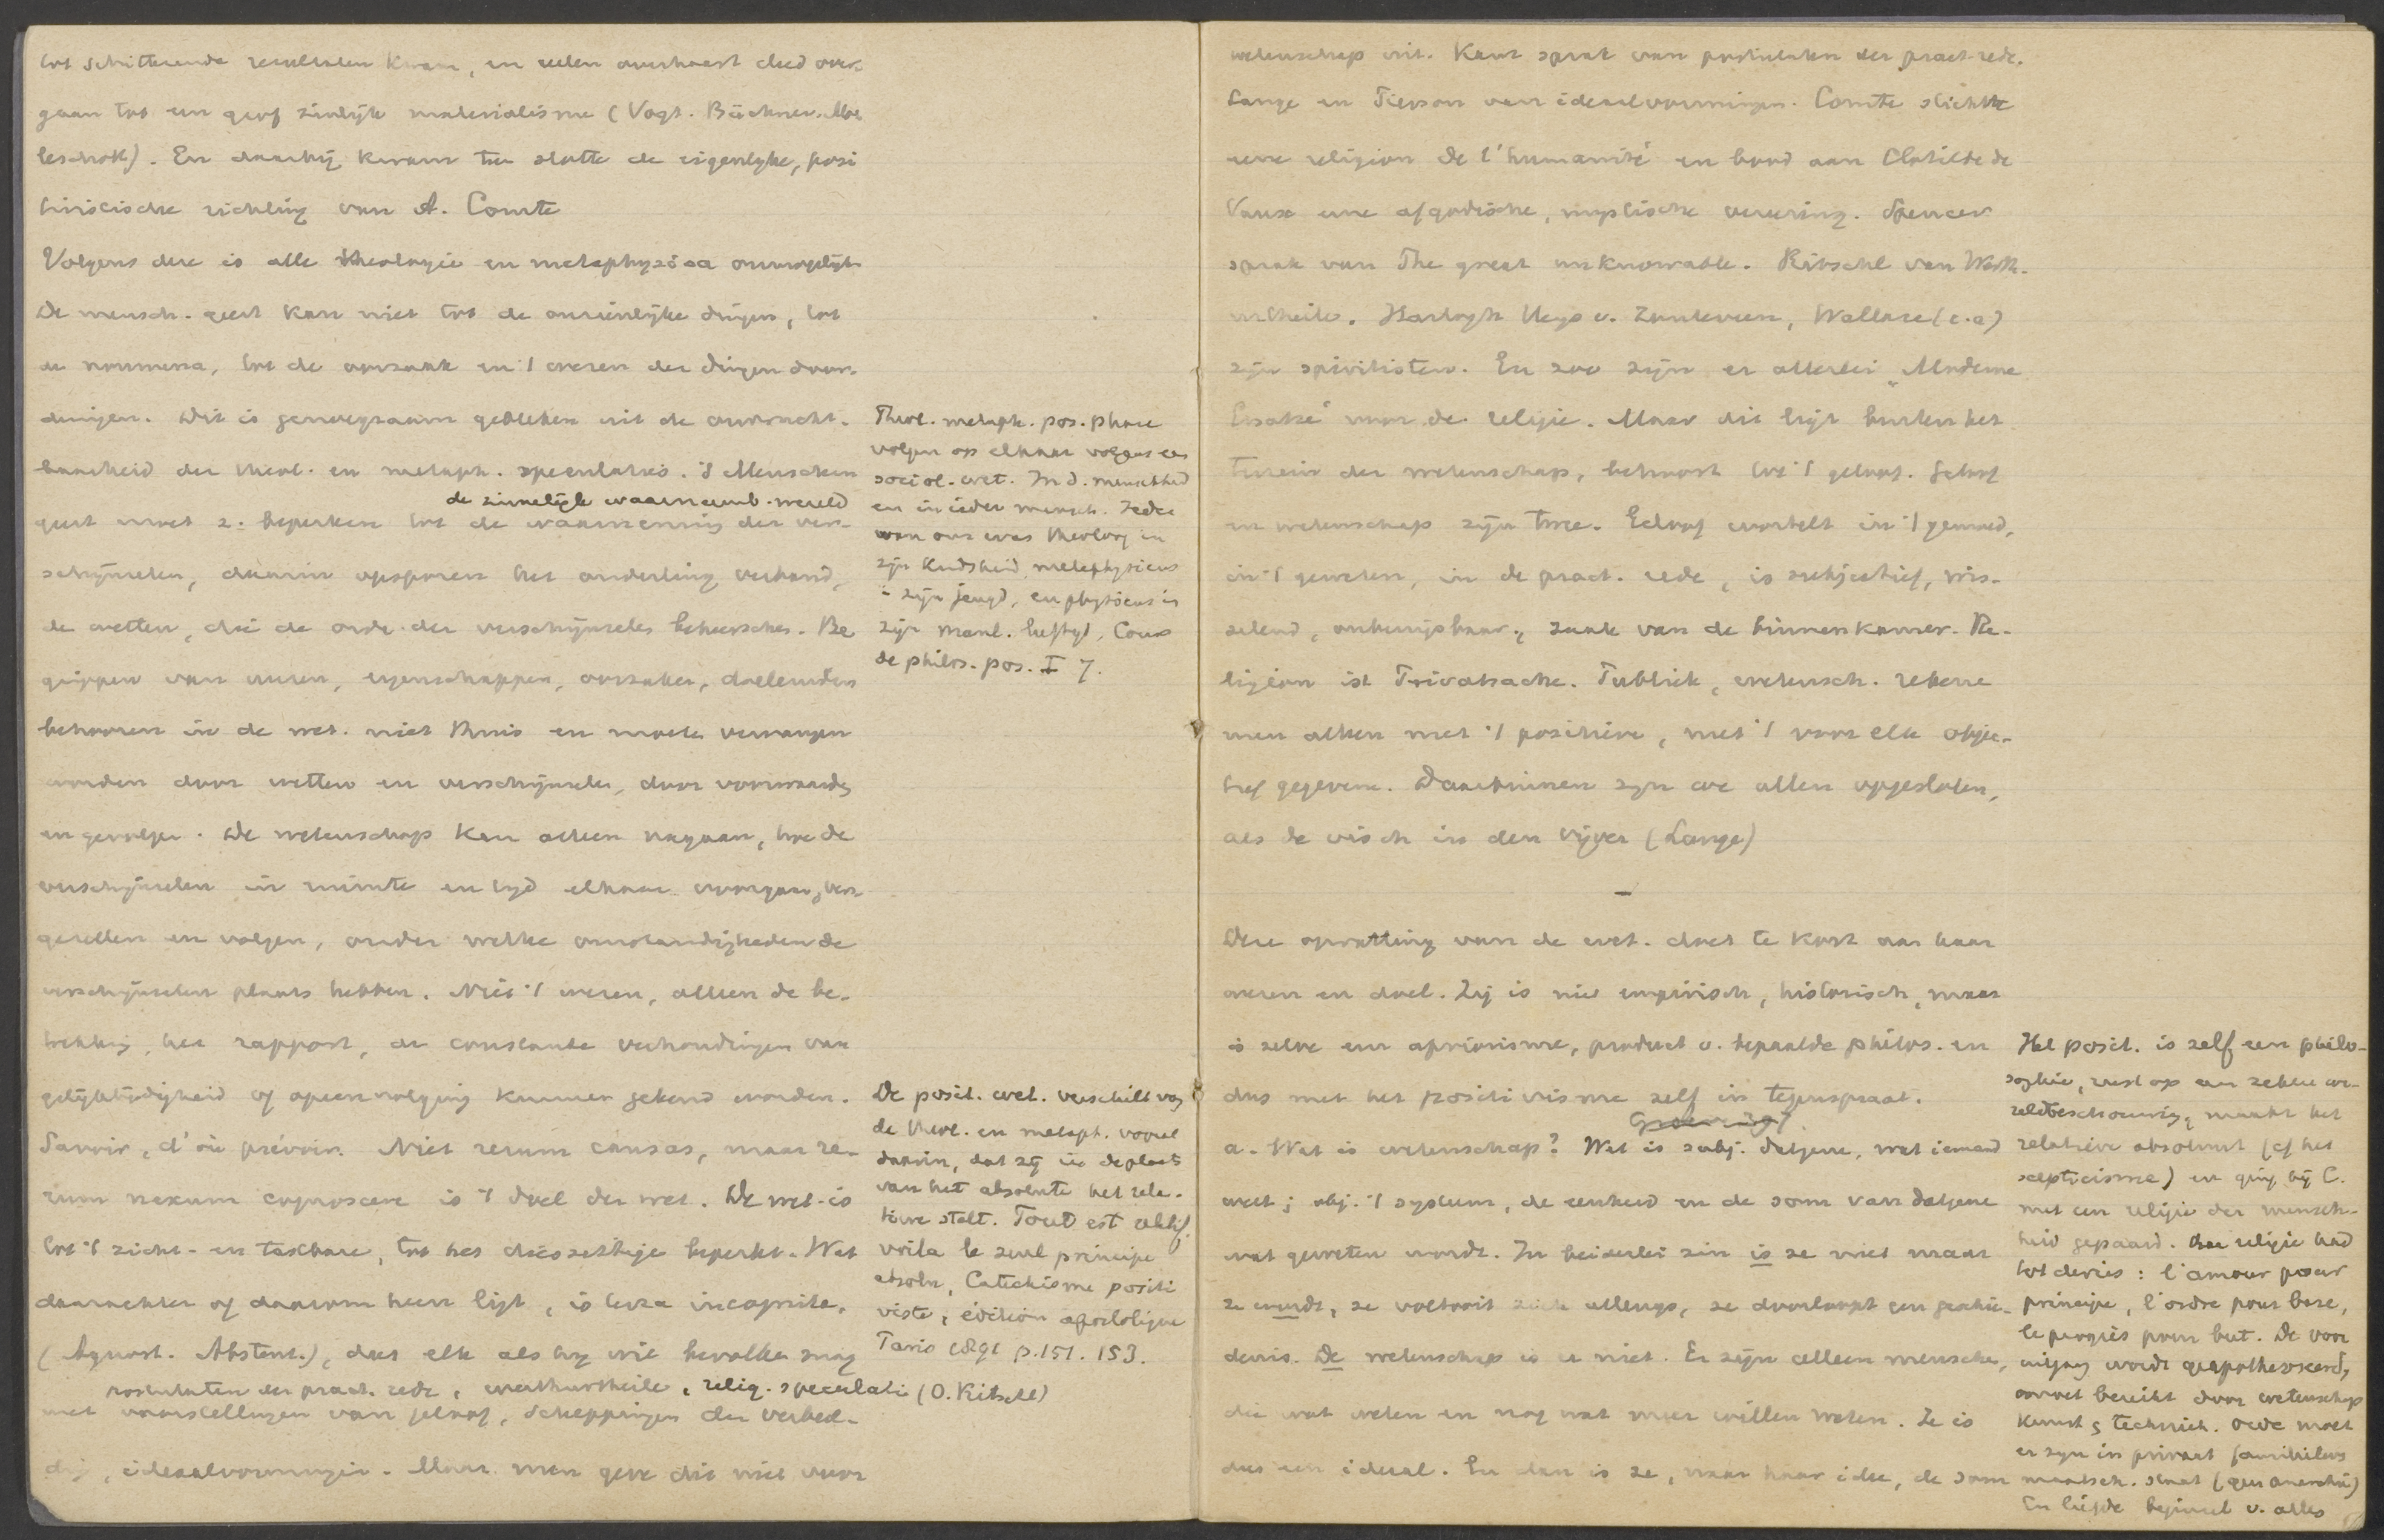 tot schitterende resultaten kwam, en velen overhaast deed over-
gaan tot een grof zinlijk materialisme (Vogt. Büchner. Mo
leschott). En daarbij kwam ten slotte de eigenlijke, posi
tivistische richting van A. Comte
Volgens deze is alle theologie en metaphysica onmogelijk
De mensch. geest kan niet tot de onzienlijke dingen, tot
de noumena, tot de oorzaak en 't wezen der dingen door-
dringen. Dit is genoegzaam gebleken uit de onvrucht-
baarheid der theol. en metaph. speculaties. 's Menschen
de zinnelijk waarneemb. wereld
geest moet z. beperken tot de waarneming der ver-
schijnselen, daarin opsporen het onderling verband,
de wetten, die de orde der verschijnselen beheerschen. Be
grippen van wezen, eigenschappen, oorzaken, doeleinden
behooren in de wet. niet thuis en moeten vervangen
worden door wetten en verschijnselen, door voorwaarden
en gevolgen. De wetenschap kan alleen nagaan, hoe de
verschijnselen in ruimte en tijd elkaar voorgaan, ver-
gezellen en volgen, onder welke omstandigheden de
verschijnselen plaats hebben. Niet 't wezen, alleen de be-
trekking, het rapport, de constante verhoudingen van
gelijktijdigheid of opeenvolging kunnen gekend worden.
Savoir, d'où prévoir. Niet rerum causas, maar re-
rum nexum cognoscere is 't doel der wet. De wet. is
tot 't zicht- en tastbare, tot het diesseitige beperkt. Wat
daarachter of daarom heen ligt, is terra incognita.
(Agnost. Abstent.), dus elk als hij wil bevolken mag
postulaten der pract. rede, werthurtheile, relig. speculatie (O. Ritschl)
met voorstellingen van geloof, scheppingen der verbeel-
ding, ideaalvormingen. Maar men geve dit niet voor
Theol. metaph. pos. phase
volgen op elkaar volgens een
sociol. wet. In d. menschheid
en in ieder mensch. Ieder
van ons was theoloog in
zijn kindsheid, metaphysicus
in zijn jeugd, en physicus in
zijn manl. leeftijd, Cours
de philos. pos. I 7.
De posit. wet. verschilt van
de theol. en metaph. vooral
daarin, dat zij in de plaats
van het absolute het rela-
tieve stelt. Tout est relatif,
voila le seul principe
absolu, Catechisme positi
viste, édition apostolique
Paris 1891 p. 151. 153.
wetenschap uit. Kant sprak van postulaten der pract. rede.
Lange en Pierson van ideaalvormingen. Comte stichtte
eene religion de l'humanité en bood aan Clotilde de
Vaux eene afgodische, mystische vereering. Spencer
sprak van The great unknowable. Ritschl van Werth-
urtheile. Hartogh Heys v. Zouteveen, Wallace (e.a)
zijn spiritisten. En zoo zijn er allerlei „Moderne
Ersatze" voor de religie. Maar dit ligt buiten het
terrein der wetenschap, behoort tot 't geloof. Geloof
en wetenschap zijn twee. Geloof wortelt in 't gemoed,
in 't geweten, in de pract. rede, is subjectief, wis-
selend, onbewijsbaar, zaak van de binnenkamer. Re-
ligion ist Privatsache. Publiek, wetensch. rekene
men alleen met 't positieve, met 't voor elk objec-
tief gegevene. Daarbinnen zijn we allen opgesloten,
als de visch in den vijver (Lange)
—
Deze opvatting van de wet. doet te kort aan haar
wezen en doel. Zij is niet empirisch, historisch, maar
is zelve een apriorisme, product v. bepaalde philos. en
dus met het positivisme zelf in tegenspraak.
a. Wat is wetenschap? Wet is subj. datgene, wat iemand
weet; obj. 't systeem, de eenheid en de som van datgene
wat geweten wordt. In beiderlei zin is ze niet maar
ze wordt, ze voltooit zich allengs, ze doorloopt een geschie-
denis. De wetenschap is er niet. Er zijn alleen menschen,
die wat weten en nog wat meer willen weten. Ze is
dus een ideaal. En dan is ze, naar haar idee, de som
Het posit. is zelf een philo-
sophie, rust op een zekere we-
reldbeschouwing, maakt het
relatieve absoluut (cf het
scepticisme) en ging bij C.
met een religie der mensch-
heid gepaard. Die religie had
tot devies: l'amour pour
principe, l'ordre pour base,
le progrès pour but. De voor
uitgang wordt geapotheoseerd,
wordt bereikt door wetenschap
kunst, techniek. Orde moet
er zijn in privaat familieleven
maatsch. staat (geen anarchie)
En liefde beginsel v. alles